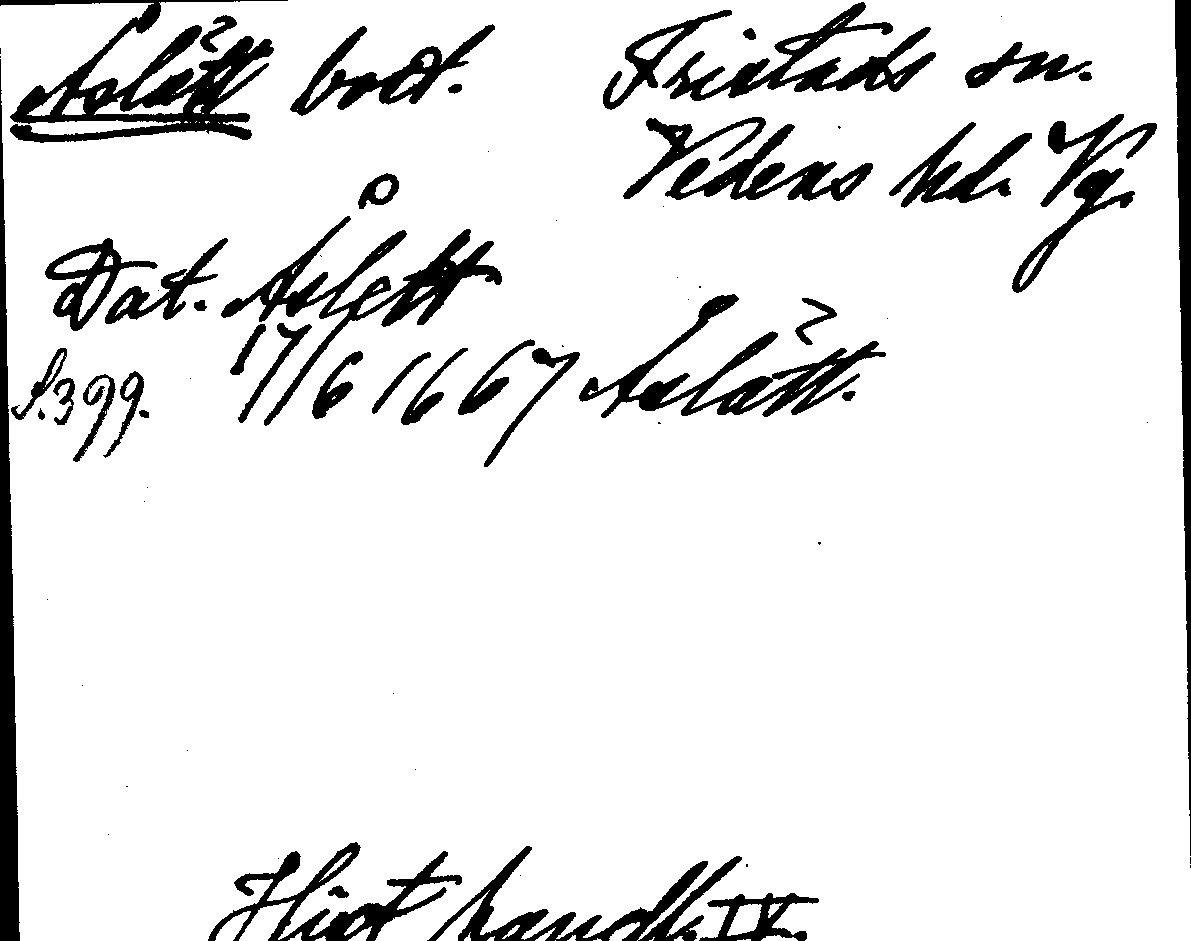 Åslätt bost. Fristads sn.
Vedens hd. Vg.
Dat. Åslett
S. 399. 17/6 1667 Åslätt.
Hist handl. IV.